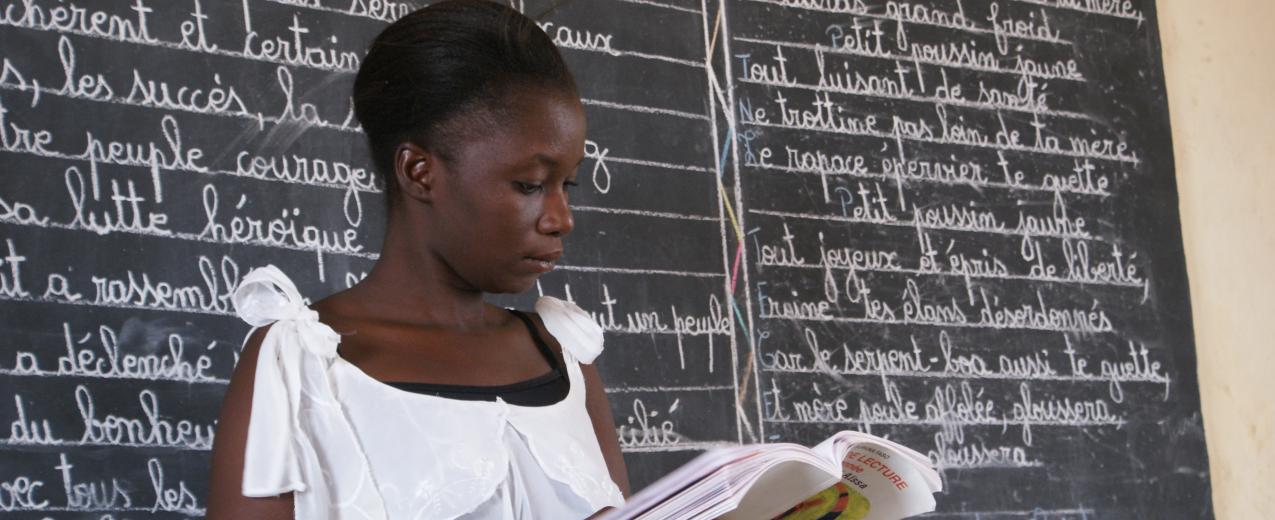 et certain
caux
s, les succès, la
peuple courage
sa lutte héroïque
a rassembl
tout un peuple
a déclenché
du bonheu
ilié
tous les
grand froid
Petit poussin jaune
Tout luisant de santé
Ne trottine pas loin de ta mère,
Le rapace épervier te guette
Petit poussin jaune
Tout joyeux et épris de liberté,
Freine tes élans désordonnés
Car le serpent-boa aussi te guette,
Et mère poule affolée, gloussera,
gloussera.
DE LECTURE